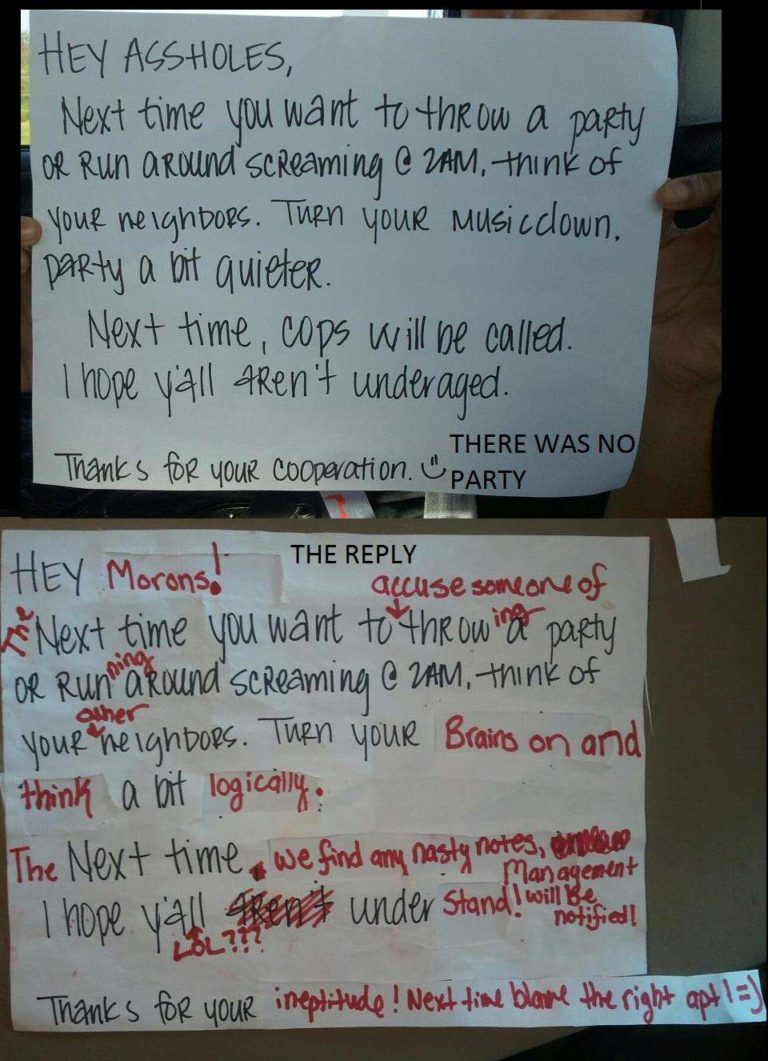 HEY ASSHOLES,
Next time you want to throw a party
or run around screaming @ 2AM, think of
your neighbors. Turn your music down.
party a bit quieter.
Next time, cops will be called.
I hope y'all aren't underaged.
Thanks for your cooperation.
THERE WAS NO
PARTY
THE REPLY
HEY Morons!
accuse someone of
The Next time you want to throwing a party
or running around screaming @ 2AM, think of
other
your neighbors. Turn your Brains on and
think a bit logically.
The Next time, we find any nasty notes,
Management
I hope y'all aren't under stand! will be
notified!
LOL???
Thanks for your ineptitude! Next time blame the right apt! =)